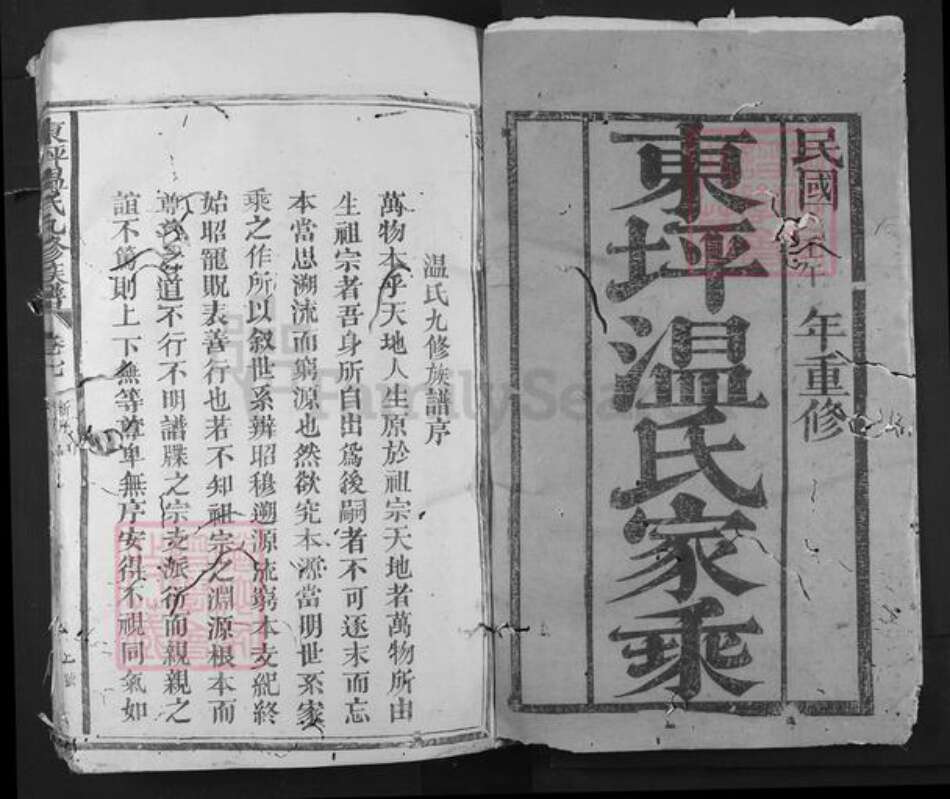 民國壬午年重修
東坪温氏家乘
温氏九修族譜序
萬物本乎天地人生原於祖宗天地者萬物所由
生祖宗者吾身所自出為後嗣者不可逐末而忘
本當思溯流而窮源也然欲究本源當明世系家
乘之作所以叙世系辨昭穆遡源流窮本支紀終
始昭寵貺表善行也若不知祖宗之淵源根本而
道不行不明譜牒之宗支派衍而親親之
誼不篤則上下無等尊卑無序安得不視同氣如
東坪温氏九修族譜
卷七
FamilySearch